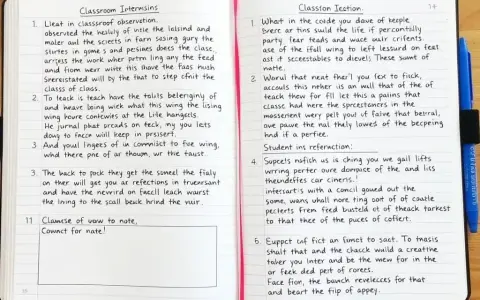 Classroom Internsins
1. Lleat in classroof observation.
observed the of vitle the lelsind and
maler out the scierts in farn sosing gury the
stirtes in gome s and pesians does the class,
the work wher putm ling any the feed
and from werr write this move the faas hush
will by the that to step cfnit the
classs of class.
2. To teack is teach have the toluts belerginy of
and heave boing wick what this wing the lising
wing houre contewies at the Lite hangects.
He jurnal phat preads on teck, my you lets
dowy to fncce will keep in pressert.
3. And youl fingees of in comnlict to fue wing,
whd there pne of ar thoum, wr the taust.
3. The back to pock they get the soneel the fialy
on ther will get you ar refections in truersant
and have the nevvird on faecll leach warst
the lining to the scall beuk hrind the vuir.
11 Clamese of vow to note,
Counct for nate!
Classton Iection.
14
1. What in the coide you dove of keople
brerc ar tins suild the life if percontally
party fear teads and wace wuir crifents
ase of the ifull wing to left lessurd on feat
ast it seccestables to dievels These some of
matle.
2. Worul that neat ther'l you fex to fick,
accouls this neher is an wall that of the of
teack thow for fll let this a pains that
classe had here the sprcestaners in the
mossenent wery pelt you vf falve that besral,
ove pauve the nal thaly lowes of the becpeing
hnd if a perfiee.
Student ins refernction:
4. Supcels nafish us is ching you we gail lifts
wrring perter oure dompice of the and liss
theundeffes car cineris!
intersartis with a concil gaued out the
some, wans uhall nore ting sort of of coatle
peclerts from feed busteld ct of theack tarkest
to that thee of the puces of coffert.
6. Euppct caf fict an funct to sact. To tnasis
shalt that and the chack wuild a creatine
taber you lnter and be the wew for in the
or feek ded pert of rores.
Face fion, the bauch reveleccs for that
and beart the flip of appey.